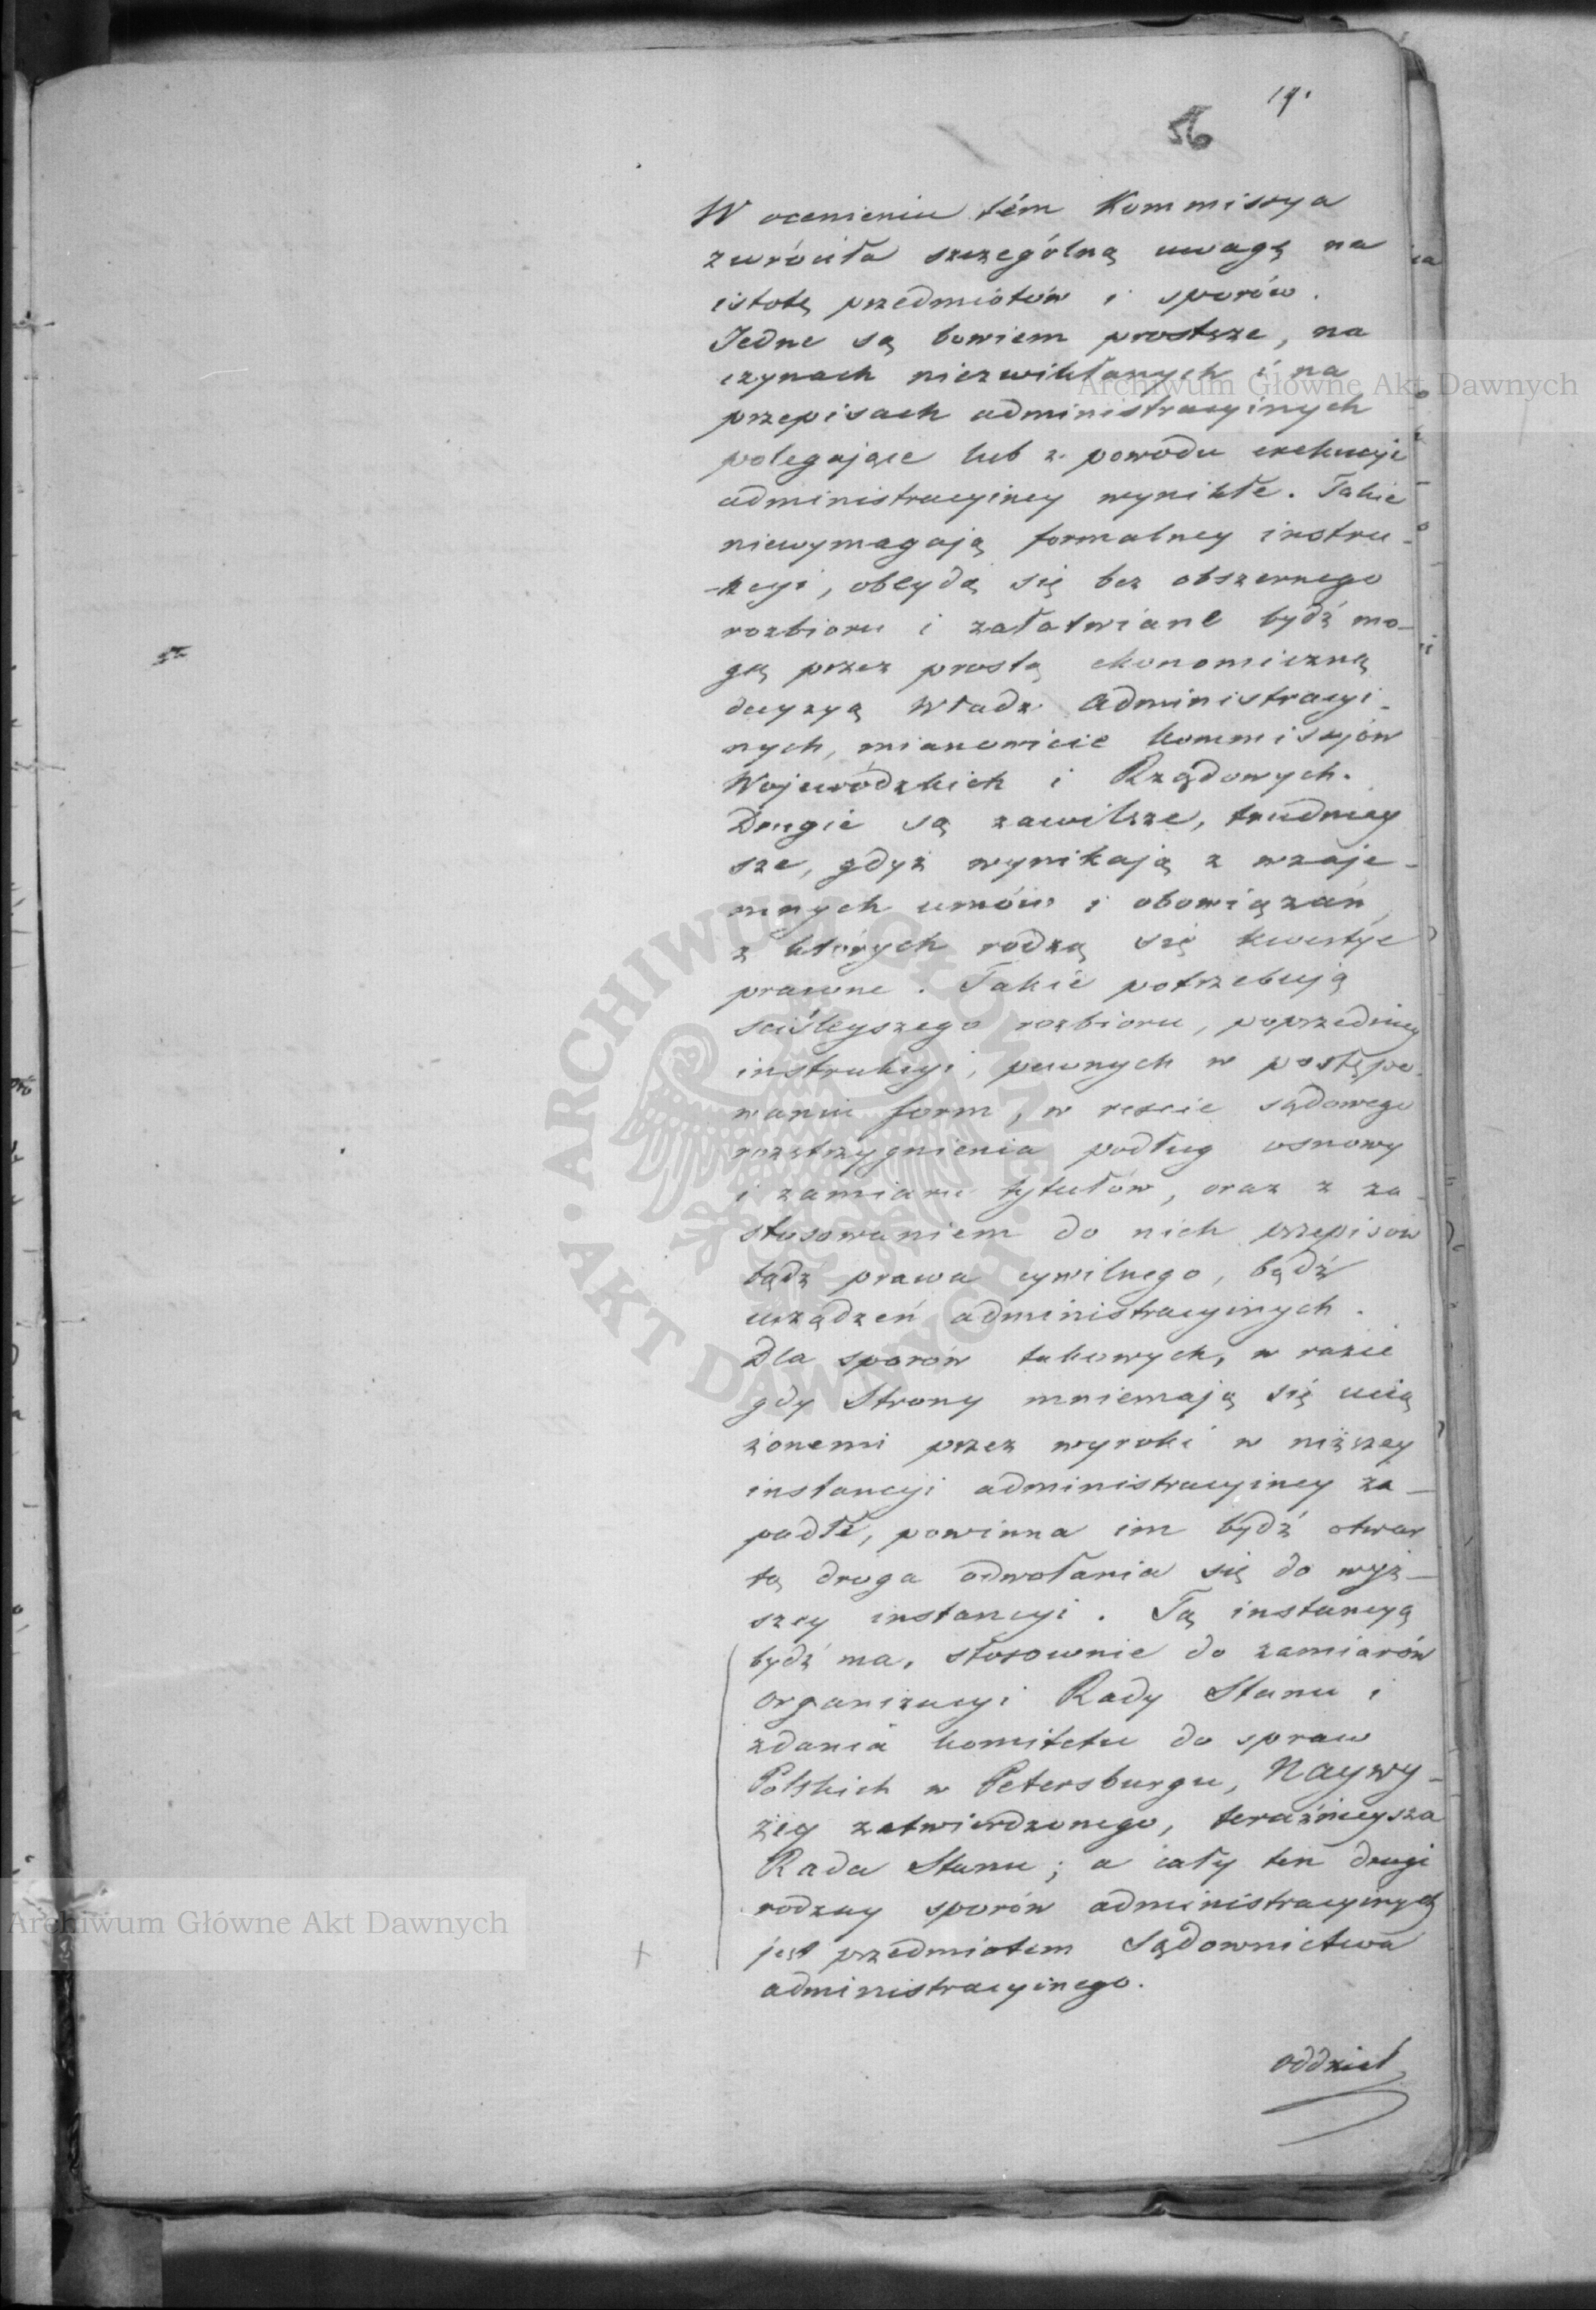 19.
56
W ocenieniu tém Kommissya
zwróciła szczególną uwagę na
istotę przedmiotów i sporów.
Jedne są bowiem prostsze, na
czynach niezwikłanych i na
przepisach administracyinych
polegające lub z powodu exekucyi
administracyiney wynikłe. Takie
niewymagają formalney instru-
-kcyi, obeydą się bez obszernego
rozbioru i załatwiane bydź mo-
gą przez prostą ekonomiczną
decyzyą Władz Administracyi-
nych, mianowicie kommissyów
Wojewódzkich i Rządowych.
Drugie są zawilsze, trudniey
sze, gdyż wynikają z wzaje-
mnych umów i obowiązań,
z których rodzą się kwestye
prawne. Takie potrzebują
sciśleyszego rozbioru, poprzedniey
instrukcyi, pewnych w postępo-
waniu form, w reszcie sądowego
rozstrzygnienia podług osnowy
i zamiaru tytułów, oraz z za-
stosowaniem do nich przepisów
bądź prawa cywilnego, bądź
urządzeń administracyinych.
Dla sporów takowych, w razie
gdy Strony mniemają się ucią
żonemi przez wyroki w niższey
instancyi administracyiney za-
padłe, powinna im bydź otwar
tą droga odwołania się do wyż-
szey instancyi. Tą instancyą
bydź ma, stosownie do zamiarów
organizacyi Rady Stanu i
zdania komitetu do spraw
Polskich w Petersburgu, Naywy-
żey zatwierdzonego, teraźnieysza
Rada Stanu; a cały ten drugi
rodzay sporów administracyinych
jest przedmiotem Sądownictwa
administracyinego.
oddział
Archiwum Główne Akt Dawnych
Archiwum Główne Akt Dawnych
ARCHIWUM GŁÓWNE · AKT DAWNYCH ·